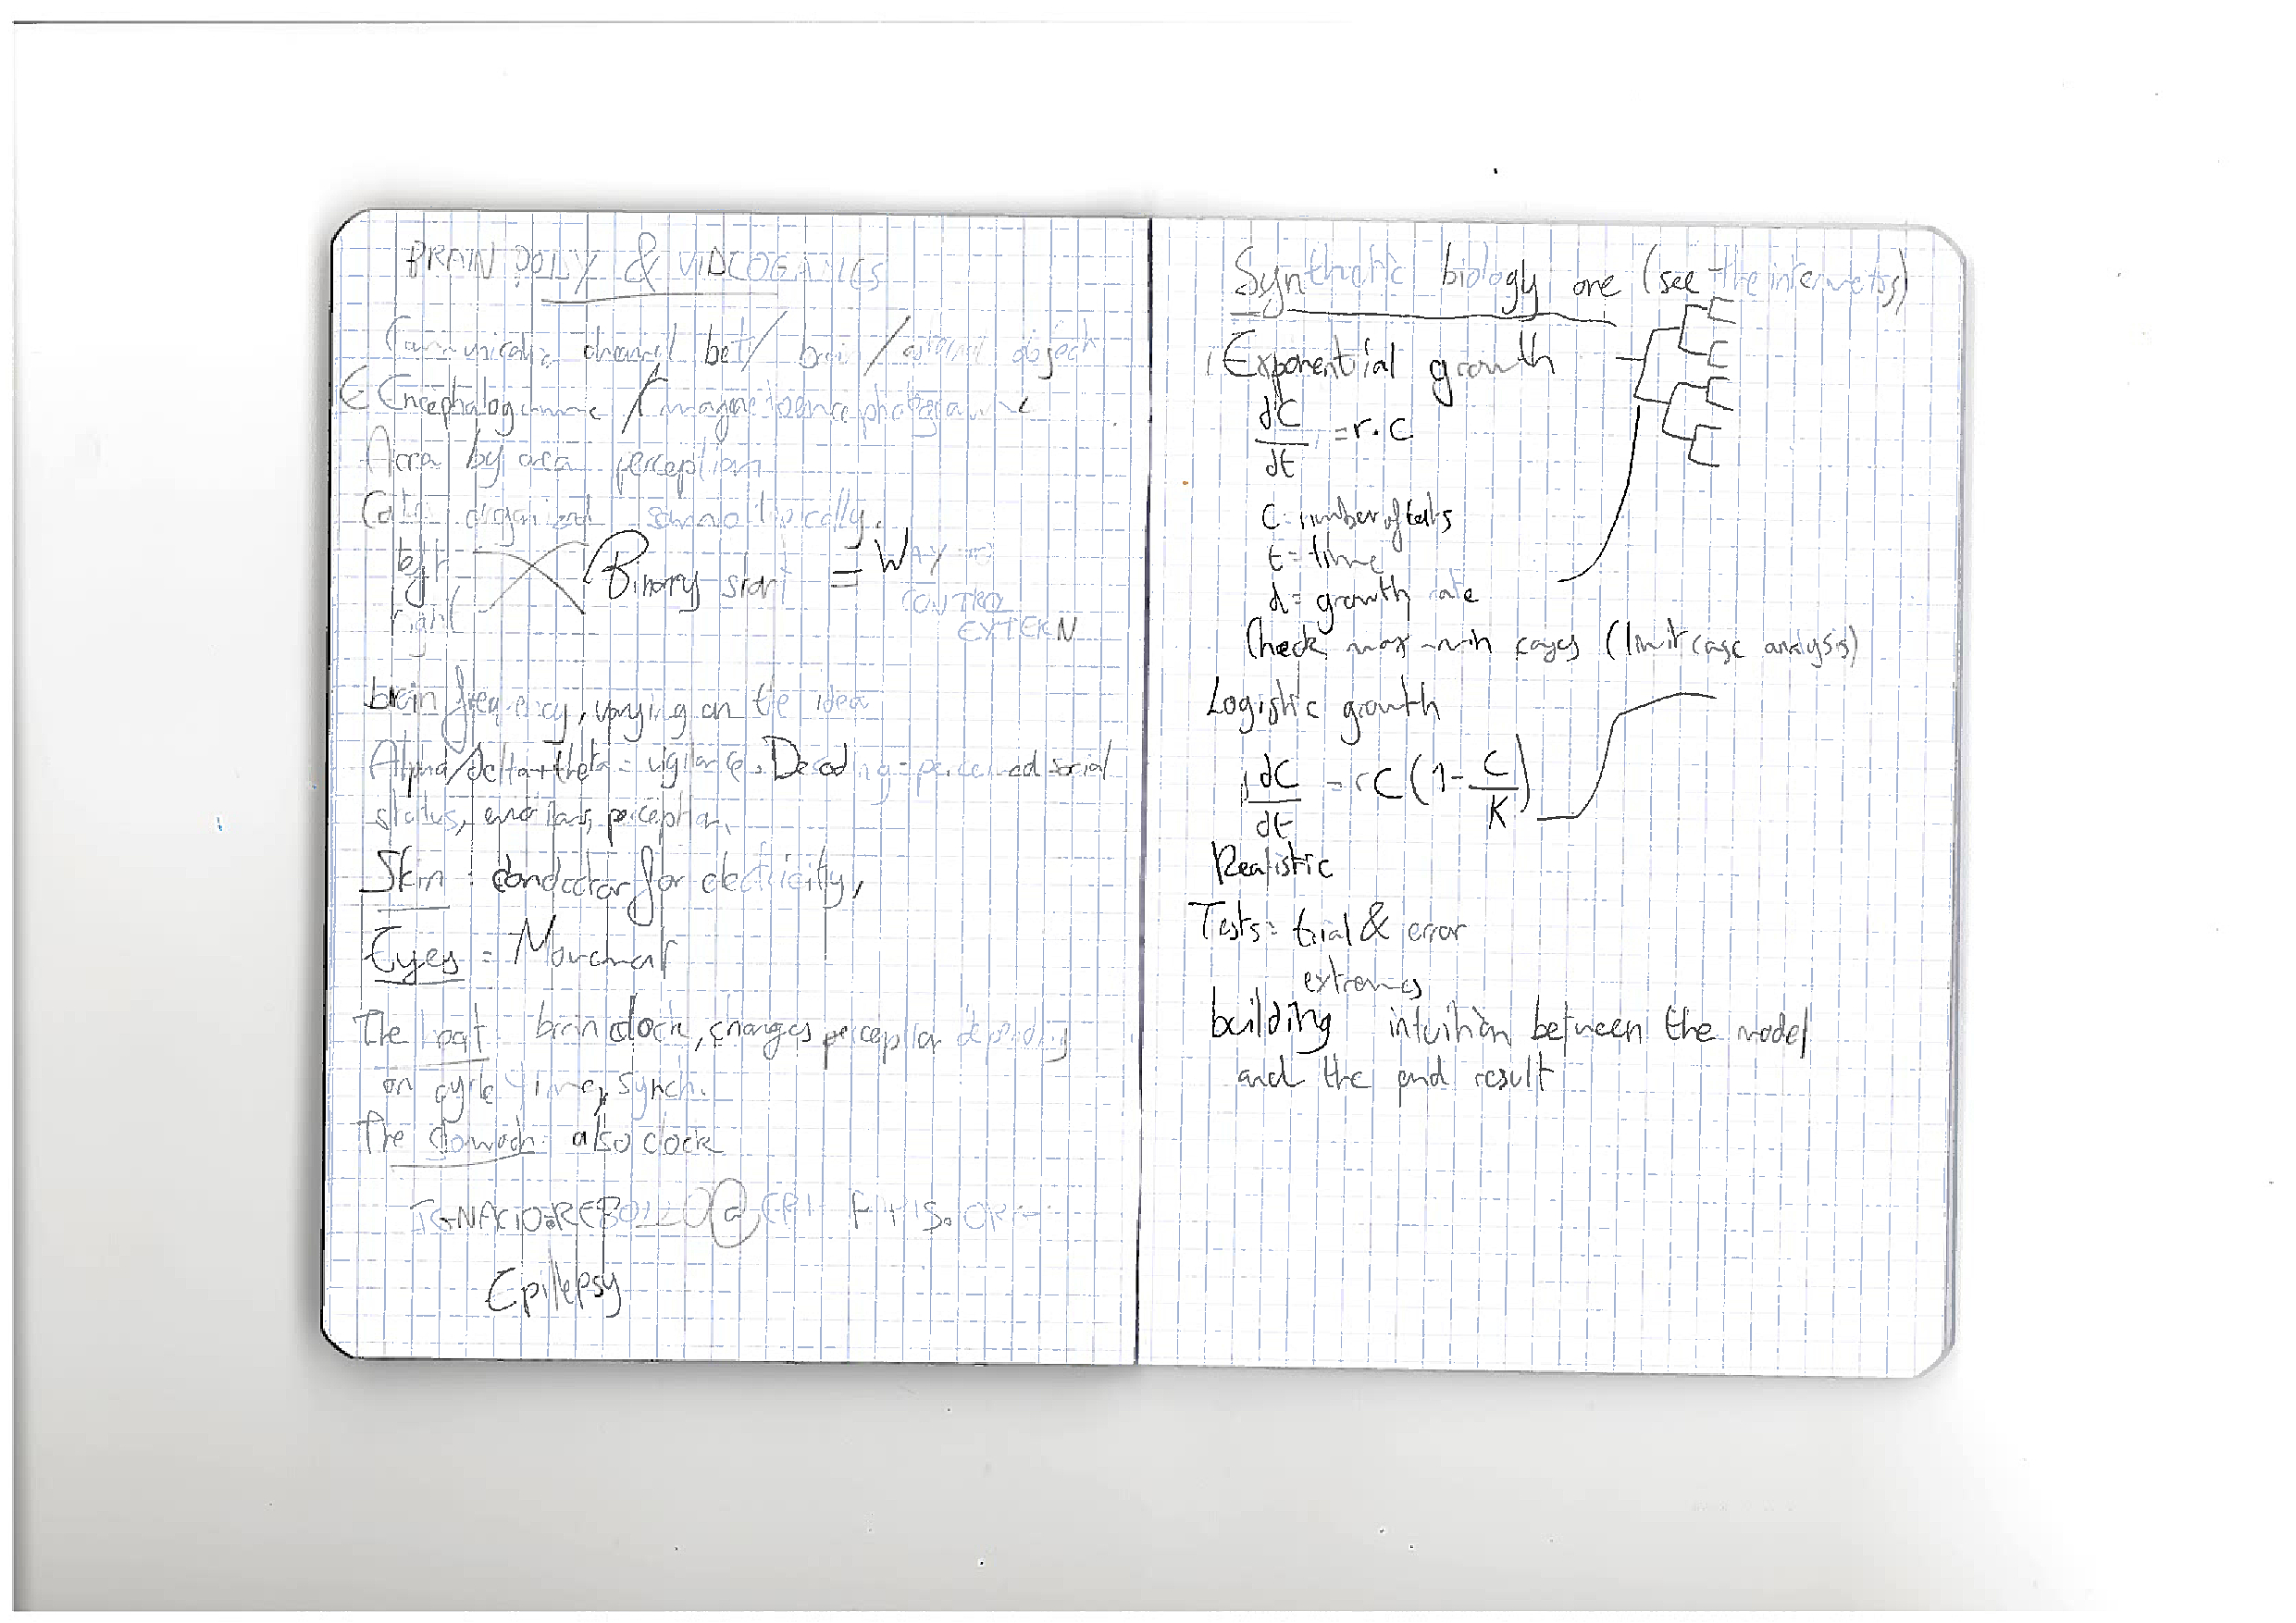 BRAIN BODY & VIDEOGAMES
Communicatio channel bet/ brain / external object
E Encephalogramme / magnetoencephalogramme
Area by area perception
organized somatotopically.
left
right
Binary start = WAY TO
CONTROL
EXTERN
brain frequency, varying on the idea
Alpha/delta+theta = vigilance. Decoding = perceived social
status, emotions, perception.
Skin : conductor for electricity,
Eyes = Movement
The heart brain clock, changes perception depending
on cycle time, synch.
The stomach also clock
Epillepsy
Synthetic biology one (see the internets)
Exponential growth
dC/dt = r.C
C = number of cells
t = time
d = growth rate
Check max-min cases (limit case analysis)
Logistic growth
dC/dt = rC(1-C/K)
Realistic
Tests = trial & error
extremes
building intuition between the model
and the end result